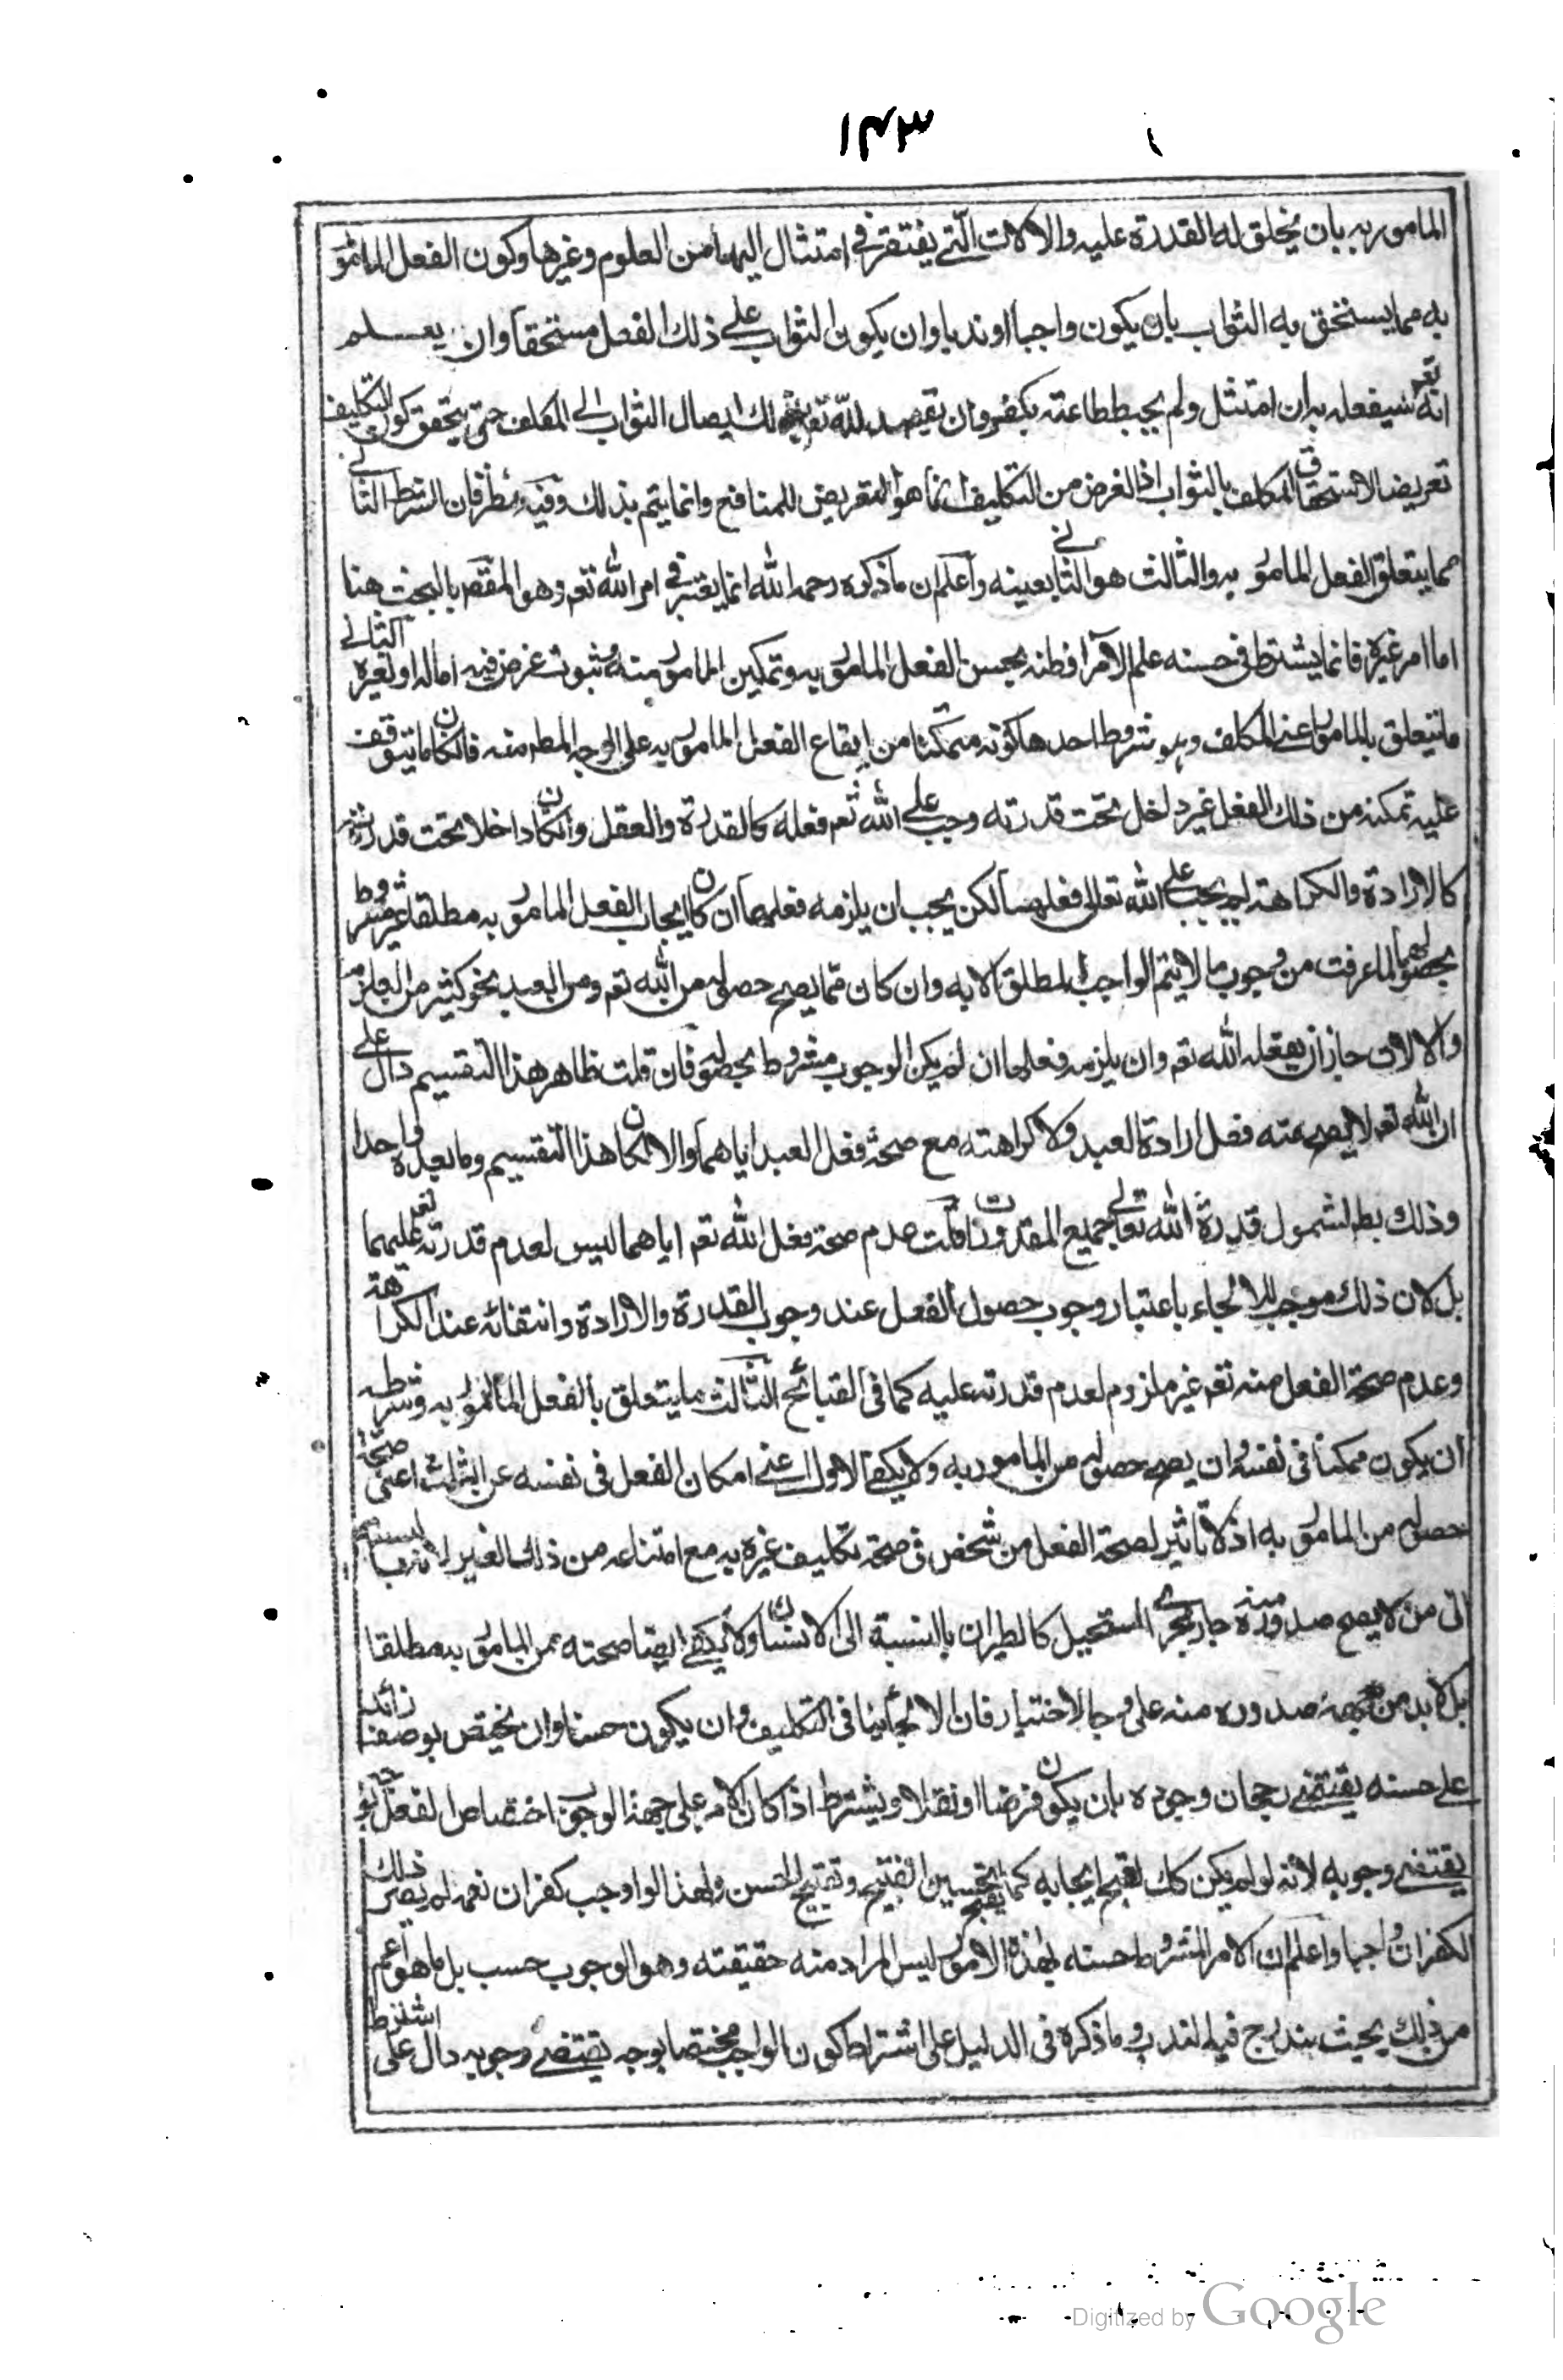 ١٤٣
المامور به بان يخلق له القدرة عليه والالات الّتے يفتقر فے امتثال اليها من العلوم وغيرها وكون الفعل المامو
به مما يستحق به الثواب بان يكون واجبا او ندبا وان يكون الثواب علے ذلك الفعل مستحقا وان يعلم
انه تعه سيفعله به ان امتثل ولم يحبط طاعته بكفر وان يقصد لله تعه بذلك ايصال الثواب الے المكلف حتى يتحقق كون التكليف
تعريضا لاستحقاق المكلف بالثواب اذ الغرض من التكليف انما هو التعريض للمنافع وانما يتم بذلك وفيه نظر فان الشرط الثانے
مما يتعلق بالفعل المامو به والثالث هو الثانے بعينه واعلم ان ما ذكره رحمه الله انما يعتبر فے امر الله تعه وهو المقصم بالبحث هنا
اما امر غيره فانما يشترط فى حسنه علم الآمر او ظنه بحسن الفعل المامور به وتمكين المامور منه وثبوت غرض فيه اما له او لغيره الثانے
ما يتعلق بالمامور اعنے المكلف وهو شروط احدها كونه متمكنا من ايقاع الفعل المامور به على الوجه المطم منه فان كان ما يتوقف
عليه تمكنه من ذلك الفعل غير داخل تحت قدرته وجب علے الله تعه فعله كالقدرة والعقل وان كان داخلا تحت قدرته
كالارادة والكراهة لم يجب علے الله تعالى فعلهما لكن يجب ان يلزمه فعلهما ان كان ايجاب الفعل المامور به مطلقا غير مشروط
بحصولهما لما عرفت من وجوب ما لا يتم الواجب المطلق الا به وان كان مما يصح حصوله من الله تعه ومن العبد نحو كثير من العلوم
والالات جاز ان يفعله الله تعه وان يلزمه فعلها ان لم يكن الوجوب مشروط بحصوله فان قلت ظاهر هذا التقسيم دال علے
ان الله تعه لا يصح منه فعل ارادة العبد ولا كراهته مع صحة فعل العبد اياهما والا لكان هذا التقسيم وما بعده واحدا
وذلك بطم لشمول قدرة الله تعالے جميع المقدورات قلت عدم صحة فعل الله تعه اياهما ليس لعدم قدرته تعه عليهما
بل لان ذلك موجب للالجاء باعتبار وجوب حصول الفعل عند وجوب القدرة والارادة وانتفائه عند الكراهة
وعدم صحة الفعل منه تعه غير ملزوم لعدم قدرته عليه كما فى القبائح الثالث ما يتعلق بالفعل المامور به وشرطه
ان يكون ممكنا فى نفسه وان يصح حصوله من المامور به ولا يكفے الاول اعنے امكان الفعل فى نفسه عن الثالث اعنى صحة
حصوله من المامور به اذ لا تاثير لصحة الفعل من شخص فى صحة تكليف غيره به مع امتناعه من ذلك الغير لانه بالنسبة
الى من لا يصح صدوره منه جار مجرے المستحيل كالطيران بالنسبة الى الانسان ولا يكفے ايضا صحته من المامور به مطلقا
بل لا بد من صحة صدوره منه على وجه الاختيار فان الالجاء ينافى التكليف وان يكون حسنا وان يختص بوصف زائد
علے حسنه يقتضے رجحان وجوده بان يكون فرضا او نفلا ويشترط اذا كان الامر على جهة الوجوب اختصاص الفعل بوجه
يقتضے وجوبه لانه لو لم يكن كذلك لقبح ايجابه كما يقبح تحسين القبيح وتقبيح الحسن ولهذا لو اوجب كفران نعمه لم يصر ذلك
الكفران واجبا واعلم ان الامر المشروط حسنه بهذه الامور ليس المراد منه حقيقته وهو الوجوب حسب بل ما هو اعم
من ذلك بحيث يندرج فيه الندب وما ذكره فى الدليل على اشتراط كون الواجب مختصا بوجه يقتضے وجوبه دال على اشتراط
Digitized by Google